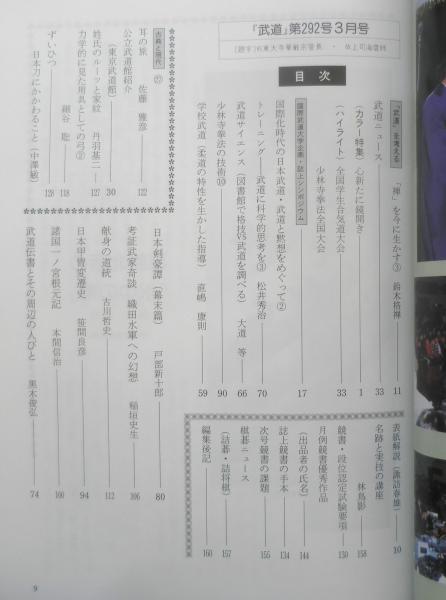 『武道』第292号3月号
目次
「武道」を考える
「禅」を今に生かす③ 鈴木格禅 11
武道ニュース 33
(カラー特集) 心新たに鏡開き 1
(ハイライト) 全国学生合気道大会 33
少林寺拳法全国大会
国際武道大学企画・誌上シンポジウム
国際化時代の日本武道・武道と黙想をめぐって② 17
トレーニング 武道に科学的思考を③ 松井秀治 70
武道サイエンス (図書館で格技VS武道を調べる) 大道 等 66
少林寺拳法の技術⑩ 90
学校武道 (柔道の特性を生かした指導) 直嶋 康則 59
表紙解説 (諏訪春雄) 10
名跡と実技の講座
林鳥影 158
競書・段位認定試験要項 130
月例競書優秀作品
(出品者の氏名) 144
誌上競書の手本 134
次号競書の課題 155
棋碁ニュース
(詰碁・詰将棋) 157
編集後記 160
古典と現代 ㉗
耳の旅 佐藤 雅彦 122
公立武道館紹介
(東京武道館) 30
姓氏のルーツと家紋 丹羽基二 127
力学的に見た用具としての弓②
細谷 聡 118
ずいひつ
日本刀にかかわること (中澤敏) 128
日本剣豪譚 (幕末篇) 戸部新十郎 80
考証武家奇談 織田水軍への幻想 稲垣史生 106
献身の道統 古川哲史 112
日本甲冑変遷史 笹間良彦 94
諸国一ノ宮根元記 本間信治 100
武道伝書とその周辺の人びと 黒木俊弘 74
9